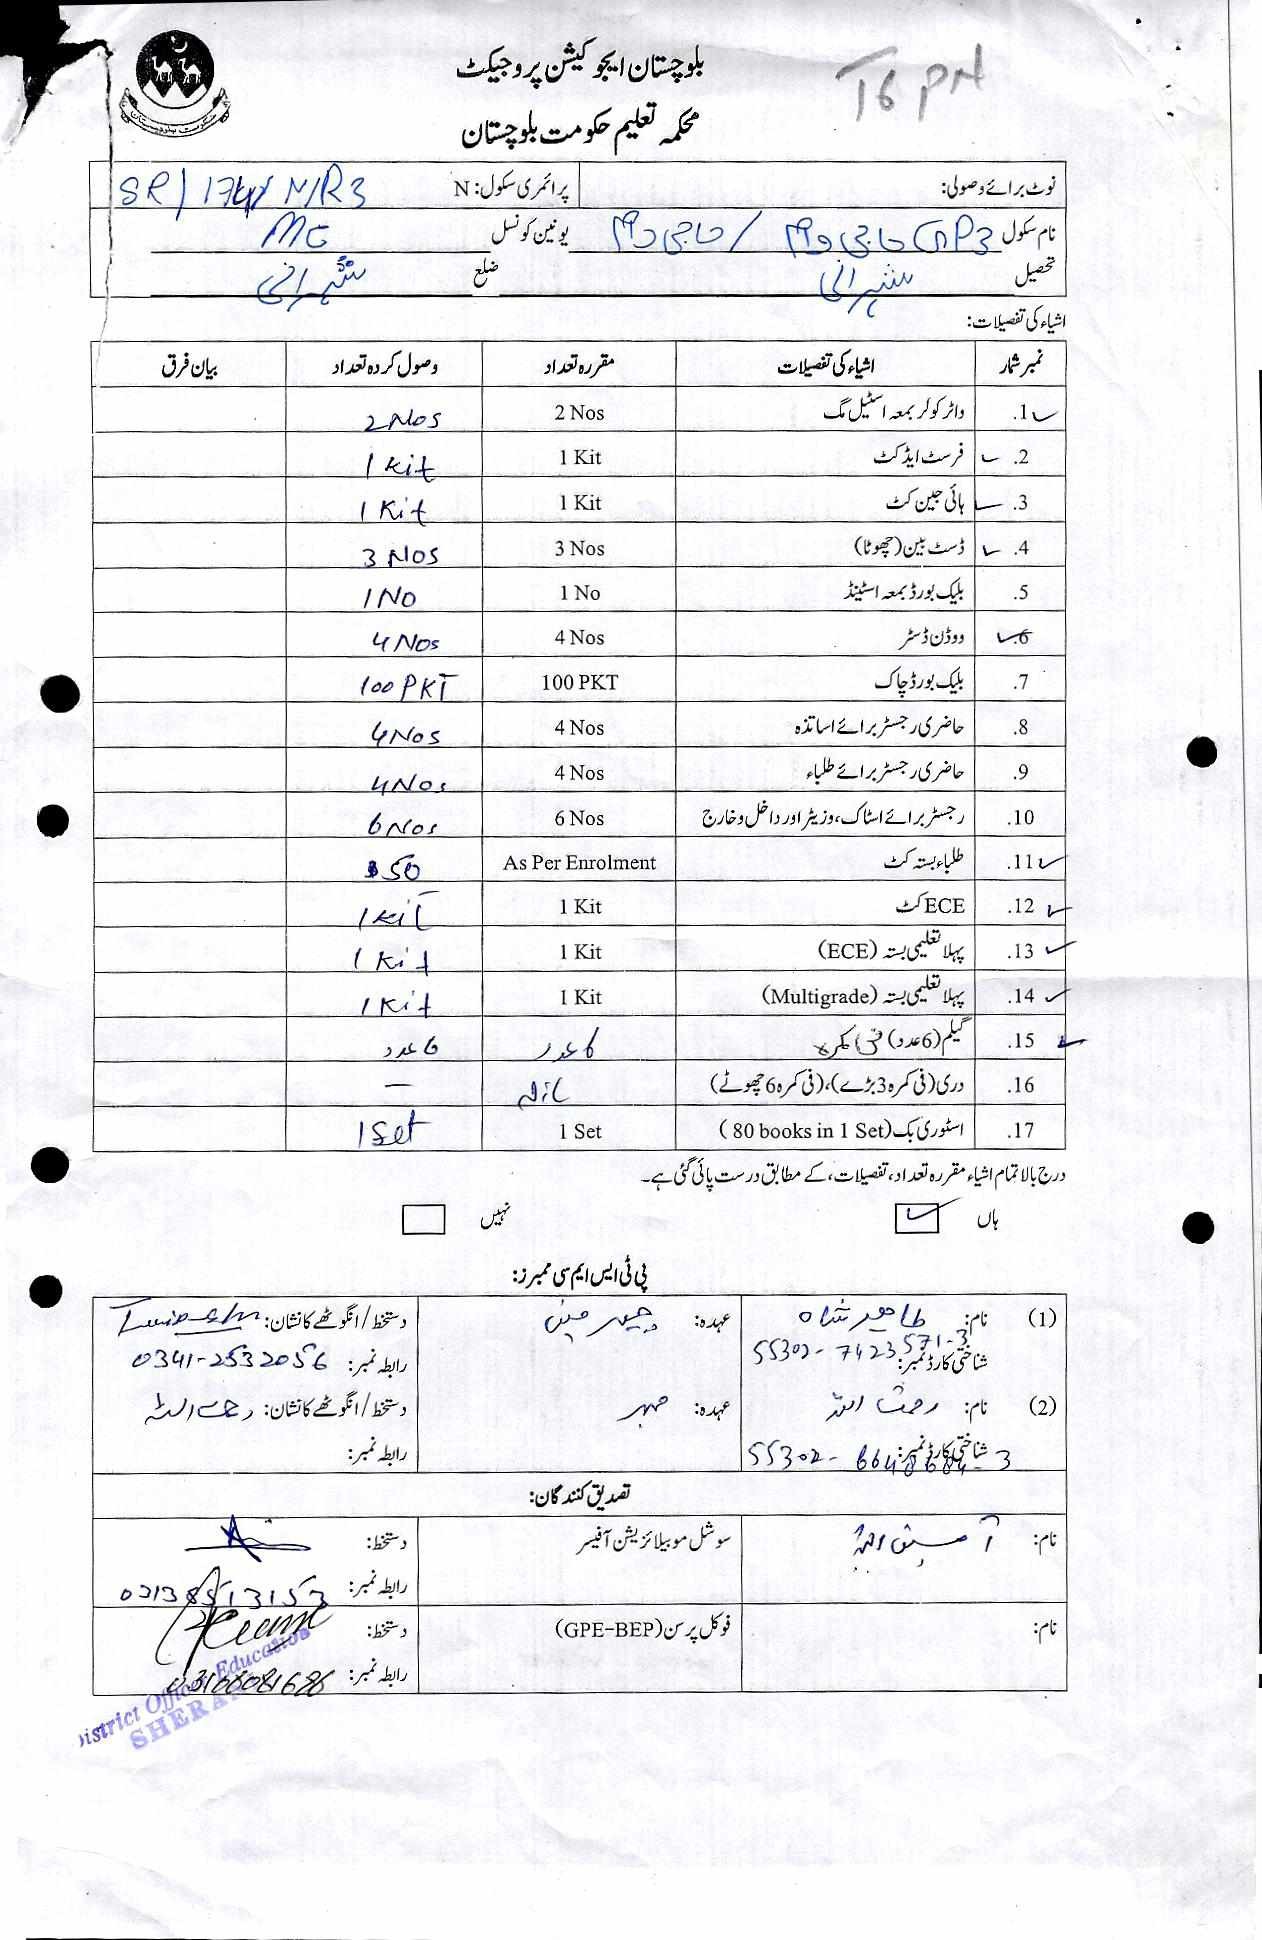 بلوچستان ایجوکیشن پروجیکٹ
T6 PN
محکمہ تعلیم حکومت بلوچستان
نوٹ برائے وصولی: پرائمری سکول: N SR/ N/R3
نام سکول GP3 حاجی / حاجی یونین کونسل MC
تحصیل شیرانی ضلع شیرانی
اشیاء کی تفصیلات:
نمبر شمار اشیاء کی تفصیلات مقررہ تعداد وصول کردہ تعداد بیان فرق
1. واٹر کولر بمعہ اسٹیل مگ 2 Nos 2 Nos
2. فرسٹ ایڈ کٹ 1 Kit 1 Kit
3. ہائی جین کٹ 1 Kit 1 Kit
4. ڈسٹ بین (چھوٹا) 3 Nos 3 Nos
5. بلیک بورڈ بمعہ اسٹینڈ 1 No 1 No
6. ووڈن ڈسٹر 4 Nos 4 Nos
7. بلیک بورڈ چاک 100 PKT 100 PKT
8. حاضری رجسٹر برائے اساتذہ 4 Nos 4 Nos
9. حاضری رجسٹر برائے طلباء 4 Nos 4 Nos
10. رجسٹر برائے اسٹاک، وزیٹر اور داخل و خارج 6 Nos 6 Nos
11. طلباء بستہ کٹ As Per Enrolment 50
12. ECE کٹ 1 Kit 1 Kit
13. پہلا تعلیمی بستہ (ECE) 1 Kit 1 Kit
14. پہلا تعلیمی بستہ (Multigrade) 1 Kit 1 Kit
15. گیلم (6 عدد) فی کمرہ 6 عدد 6 عدد
16. دری (فی کمرہ 3 بڑے)، (فی کمرہ 6 چھوٹے) Nil —
17. اسٹوری بک (80 books in 1 Set) 1 Set 1 Set
درج بالا تمام اشیاء مقررہ تعداد، تفصیلات، کے مطابق درست پائی گئی ہے۔
ہاں نہیں
پی ٹی ایس ایم سی ممبرز:
(1) نام: طاہر شاہ عہدہ: چیئرمین دستخط/انگوٹھے کا نشان:
شناختی کارڈ نمبر: 55302-7423571-3 رابطہ نمبر: 0341-2532056
(2) نام: رحمت اللہ عہدہ: ممبر دستخط/انگوٹھے کا نشان: رحمت اللہ
شناختی کارڈ نمبر: 55302-6648684-3 رابطہ نمبر:
تصدیق کنندگان:
نام: سوشل موبیلائزیشن آفیسر دستخط:
رابطہ نمبر: 03138513153
نام: فوکل پرسن (GPE-BEP) دستخط:
رابطہ نمبر: 03168081686
District Officer Education
SHERA